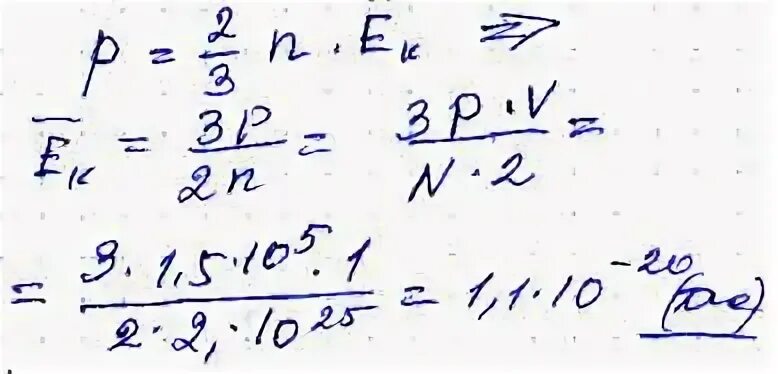 p = 2/3 n · Eк ⇒
Ēк = 3P/2n = 3P·V/N·2 =
= 3·1,5·10⁵·1/2·2,·10²⁵ = 1,1·10⁻²⁰ (Дж)